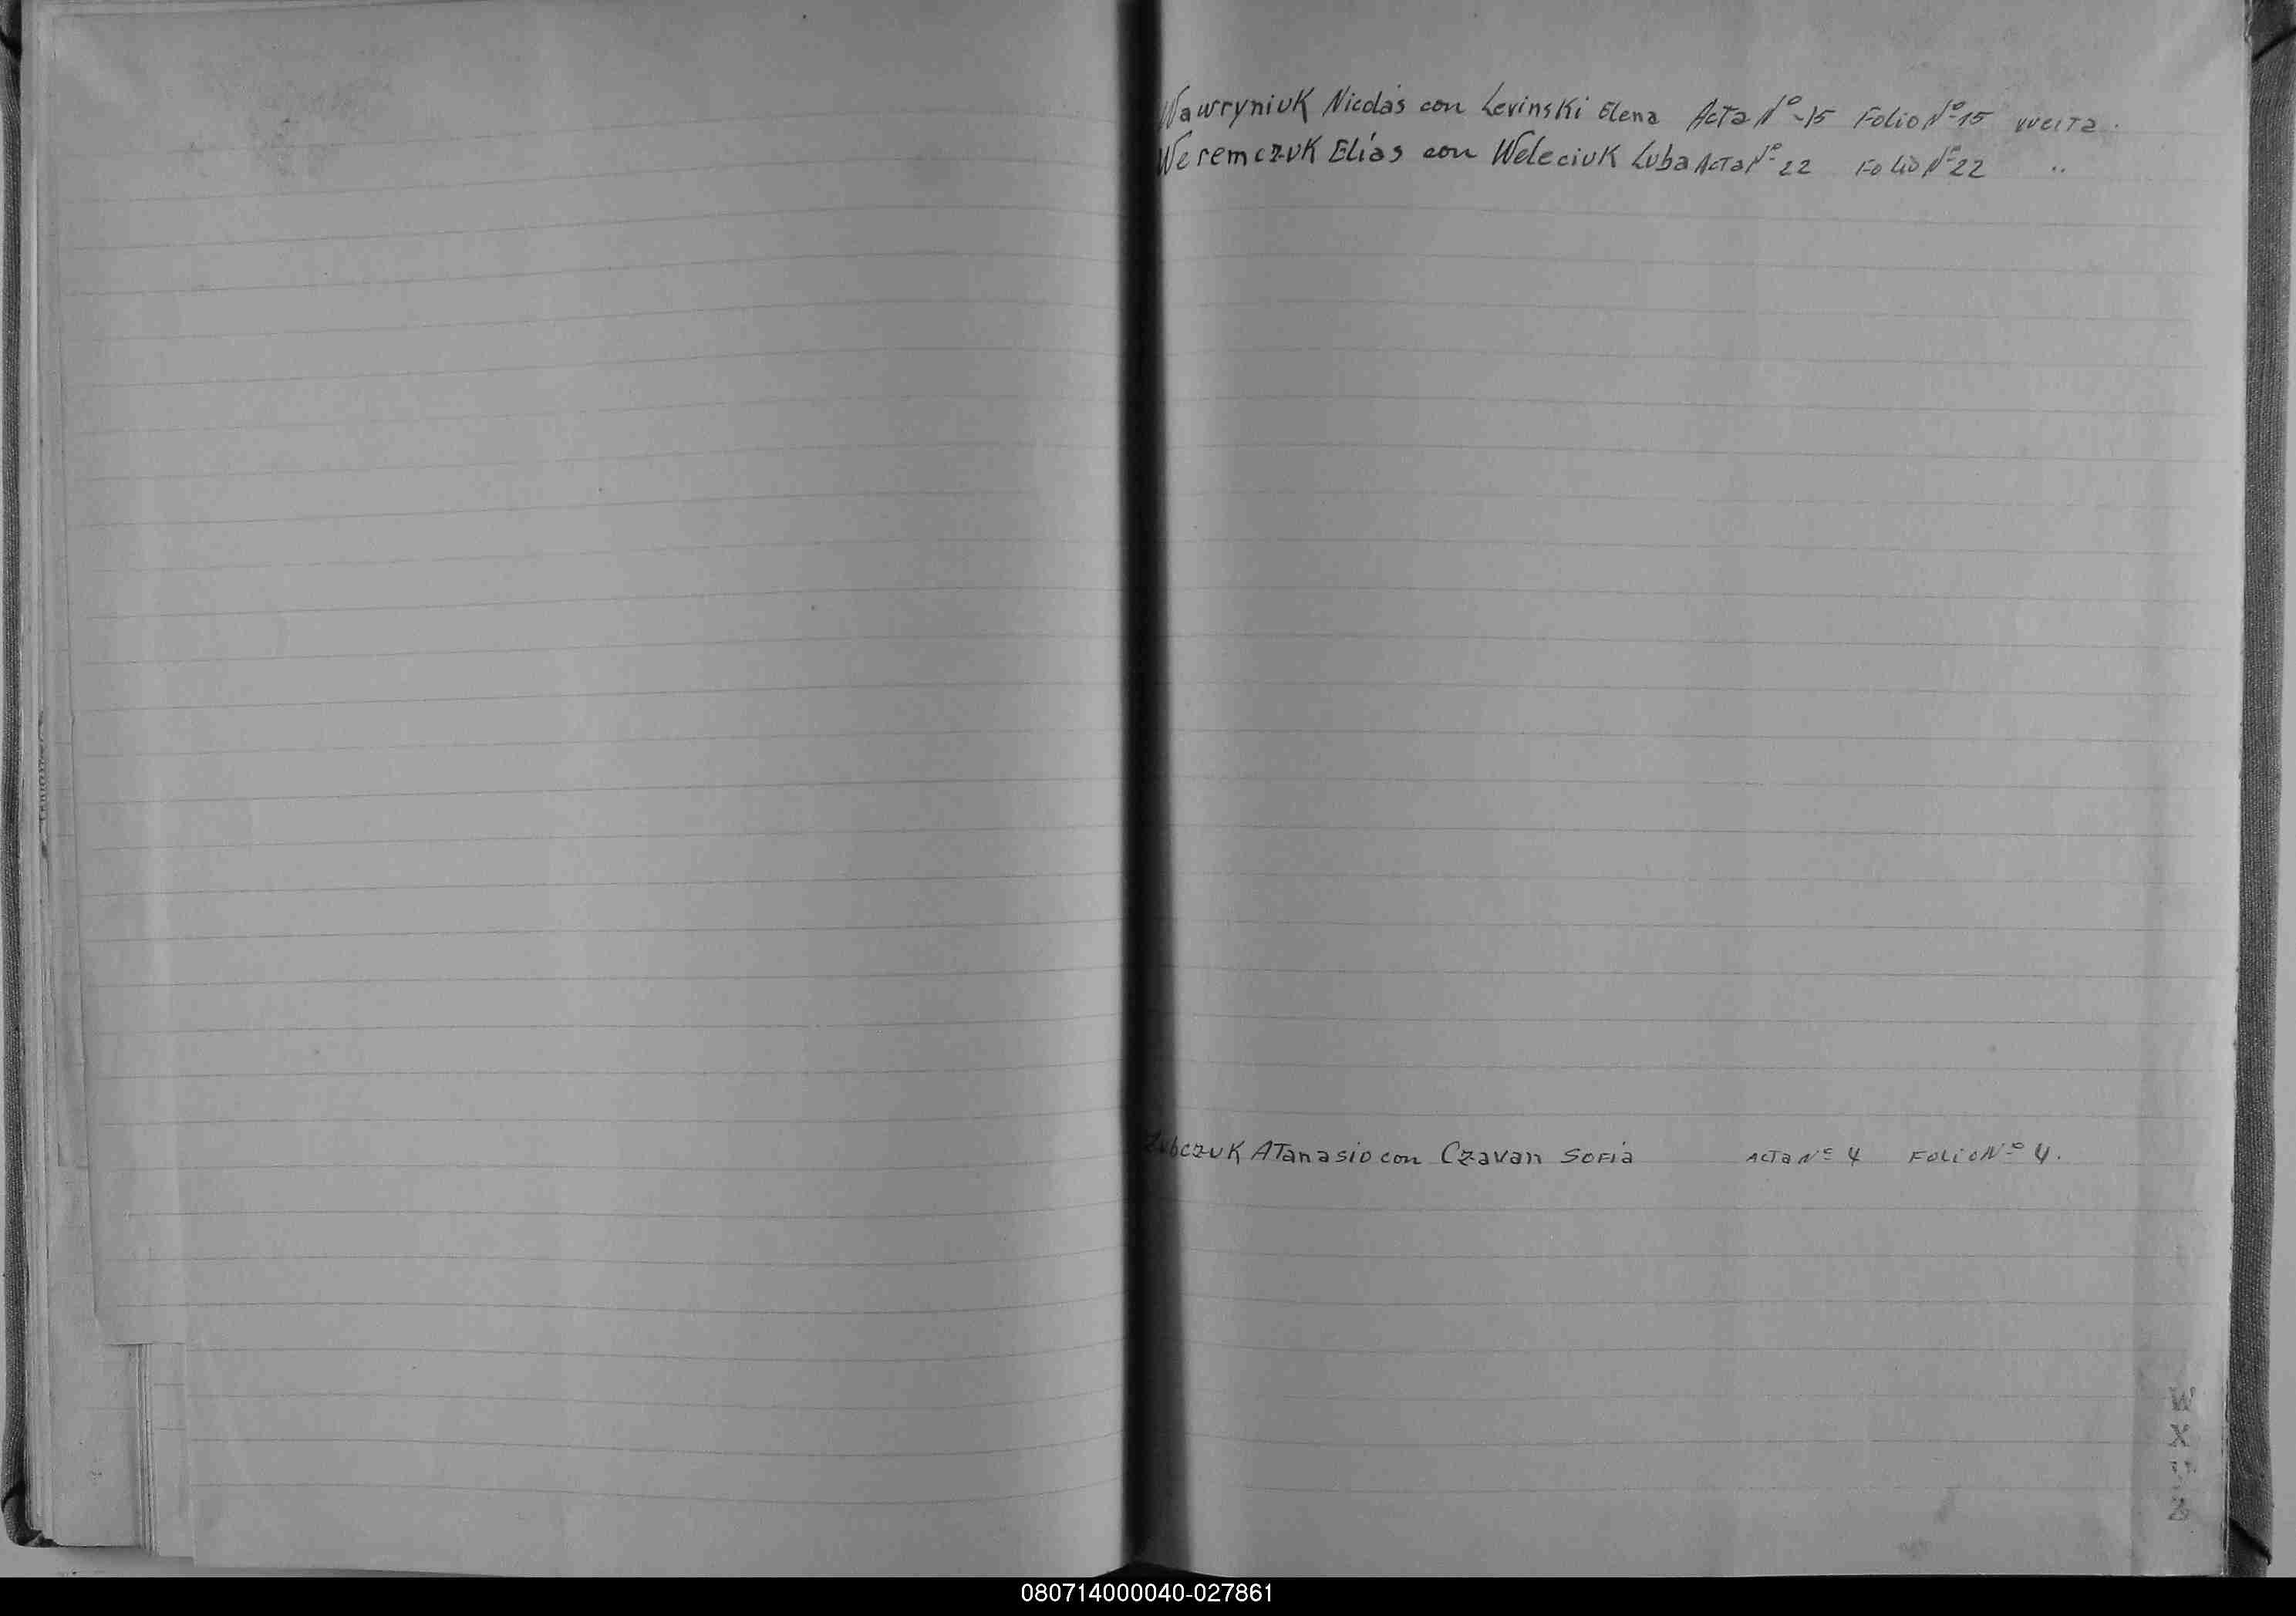 Wawryniuk Nicolás con Levinski Elena Acta Nº 15 Folio Nº 15 vuelta.
Weremczuk Elías con Weleciuk Luba Acta Nº 22 Folio Nº 22 ..
Atanasio con Czavan Sofia Acta Nº 4 Folio Nº 4.
W
X
Y
Z
080714000040-027861